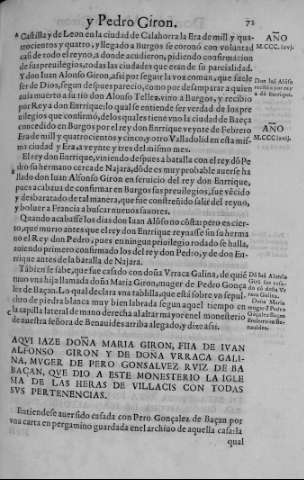 y Pedro Giron. 72
Castilla y de Leon en la ciudad de Calahorra la Era de mill y qua-
trocientos y quatro, y llegado a Burgos se coronó con voluntad
casi de todo el reyno, a donde acudieron, pidiendo confirmacion
de sus preuilegios, todas las ciudades que eran de su parcialidad.
Y don Iuan Alonso Giron, assi por seguir la voz comun, que suele
ser de Dios, segun despues parecio, como por desamparar a quien
auia muerto a su tio don Alonso Tellez, vino a Burgos, y recibio
por Rey a don Enrrique: lo qual se entiende ser verdad de los pre
uilegios que confirmó, delos quales tiene vno la ciudad de Baeça
concedido en Burgos por el rey don Enrrique veynte de Febrero
Era de mill y quatrocientos y cinco, y otro Valladolid en esta mis
ma ciudad y Era, a veynte y tres del mismo mes.
El rey don Enrrique, viniendo despues a batalla con el rey dõ Pe
dro su hermano cerca de Najara, dõde es muy probable auerse ha
llado don Iuan Alfonso Giron en seruicio del rey don Enrrique,
pues acabaua de confirmar en Burgos sus preuilegios, fue vēcido
y desbaratado de tal manera, que fue constreñido salir del reyno,
y boluer a Francia a buscar nueuos fauores.
Quando acabasse los dias don Iuan Alfonso no cõsta: pero es cier-
to, que murio antes que el rey don Enrrique reynasse sin su herma
no el Rey don Pedro, pues en ningun priuilegio rodado se halla,
auiendo primero confirmado los del rey don Pedro, y de don En-
rrique antes de la batalla de Najara.
Tãbien se sabe, que fue casado con doña Vrraca Galina, de quiē
tuuo vna hija llamada doña Maria Giron, muger de Pedro Gonça
lez de Baçan. Lo qual declara vna tablilla, que està sobre vn sepul
chro de piedra blanca muy bien labrada segun aquel tiempo en
la capilla lateral de mano derecha al altar mayor en el monesterio
de nuestra señora de Benauides arriba alegado, y dize assi.
AQVI IAZE DOÑA MARIA GIRON, FIIA DE IVAN
ALFONSO GIRON Y DE DOÑA VRRACA GALI-
NA, MVGER DE PERO GONSALVEZ RVIZ DE BA
BAÇAN, QVE DIO A ESTE MONESTERIO LA IGLE
SIA DE LAS HERAS DE VILLACIS CON TODAS
SVS PERTENENCIAS.
Entiendese auer sido casada con Pero Gonçalez de Baçan por
vna carta en pergamino guardada en el archiuo de aquella casa: la
qual
AÑO
M.CCC.lxvj.
AÑO
M.CCC.lxvij.